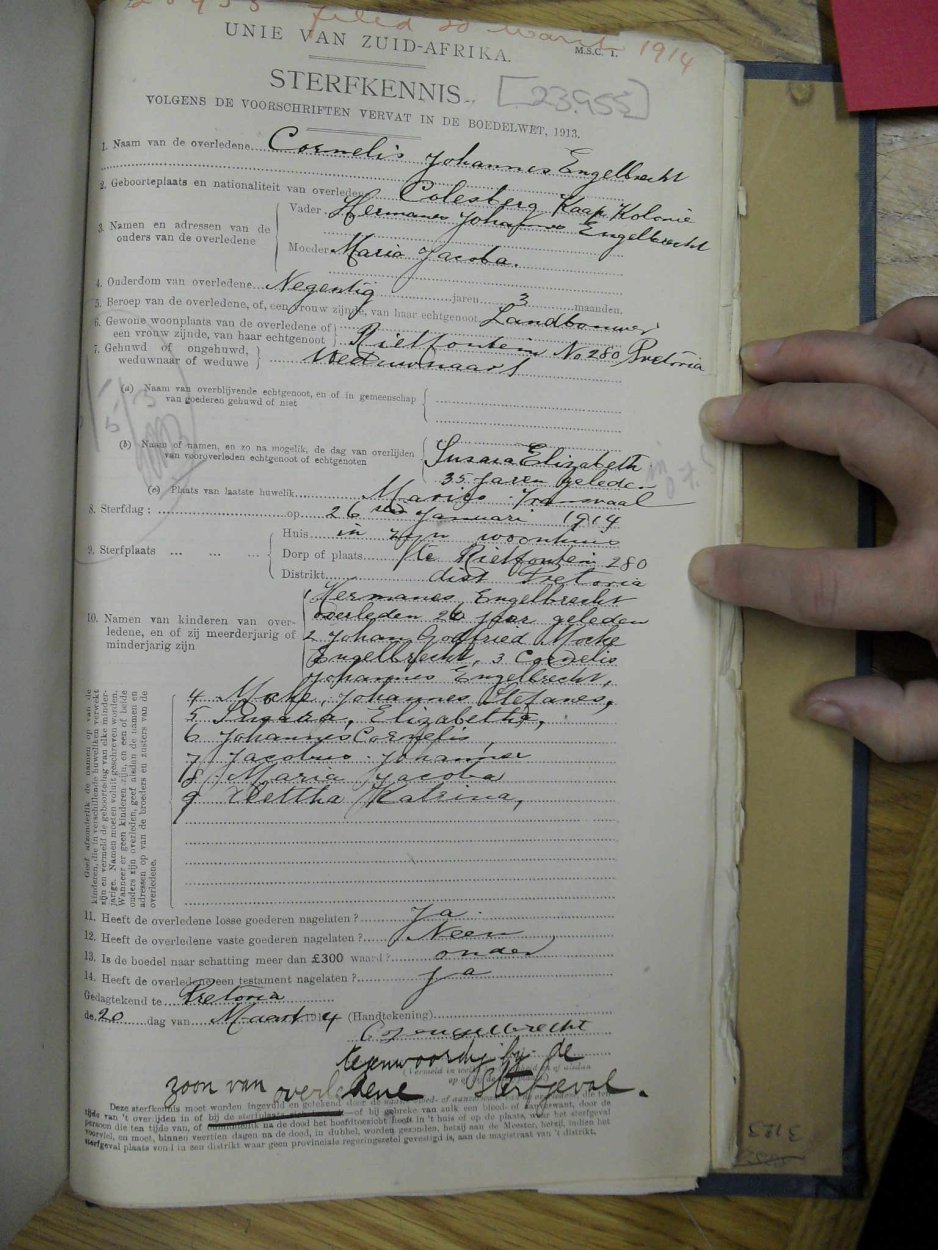 filed 20 March 1914
UNIE VAN ZUID-AFRIKA.
M.S.C. 1.
STERFKENNIS.
[23955]
VOLGENS DE VOORSCHRIFTEN VERVAT IN DE BOEDELWET, 1913.
1. Naam van de overledene Cornelis Johannes Engelbrecht
2. Geboorteplaats en nationaliteit van overledene Colesberg Kaap Kolonie
3. Namen en adressen van de ouders van de overledene
Vader Hermanes Johannes Engelbrecht
Moeder Maria Jacoba.
4. Onderdom van overledene Negentig jaren 3 maanden.
5. Beroep van de overledene, of, een vrouw zijnde, van haar echtgenoot Landbouwer
6. Gewone woonplaats van de overledene of een vrouw zijnde, van haar echtgenoot Rietfontein No 280 Pretoria
7. Gehuwd of ongehuwd, weduwnaar of weduwe Weduwnaar
(a) Naam van overblijvende echtgenoot, en of in gemeenschap van goederen gehuwd of niet
(b) Naam of namen, en zo na mogelik, de dag van overlijden van vooroverleden echtgenoot of echtgenoten
Susara Elizabeth
35 jaren geleden
(c) Plaats van laatste huwelik Marico Transvaal
8. Sterfdag: op 26 sten Januari 1914
9. Sterfplaats
Huis in zijn woonhuis
Dorp of plaats te Rietfontein 280
Distrikt dist Pretoria
10. Namen van kinderen van overledene, en of zij meerderjarig of minderjarig zijn
1 Hermanes Engelbrecht
overleden 26 jaar geleden
2 Johan Godfried Moke
Engelbrecht, 3 Cornelis
Johannes Engelbrecht,
4 Moke, Johannes Stefanes,
5 Susara, Elizabetha,
6 Johannes Cornelis,
7 Jacobus Johannes
8 Maria Jacoba
9 Hettha Katrina,
Geef afzonderlik de namen op van de kinderen, die in verschillende huweliken verwekt zijn en vermeld de geboortedag van elke minderjarige. Namen moeten voluit geschreven worden. Wanneer er geen kinderen zijn, en een of beide ouders zijn overleden, geef alsdan de namen en adressen op van de broeders en zusters van de overledene.
11. Heeft de overledene losse goederen nagelaten? Ja
12. Heeft de overledene vaste goederen nagelaten? Neen
13. Is de boedel naar schatting meer dan £300 waard? onder
14. Heeft de overledene een testament nagelaten? Ja
Gedagtekend te Pretoria
de 20 dag van Maart 1914 (Handtekening)
C J Engelbrecht
teenwoordig by de
zoon van overledene Sterfgeval.
Deze sterfkennis moet worden ingevuld en getekend door de
tijde van 't overlijden in of bij de sterfplaats
persoon die ten tijde van, of onmiddellik na de dood het hoofdtoezicht heeft in 't huis of op de plaats, waar het sterfgeval
voorviel, en moet, binnen veertien dagen na de dood, in dubbel, worden gezonden, hetzij aan de Meester, hetzij, indien het
sterfgeval plaats vond in een distrikt waar geen provinciale regeringszetel gevestigd is, aan de magistraat van 't distrikt.
3123